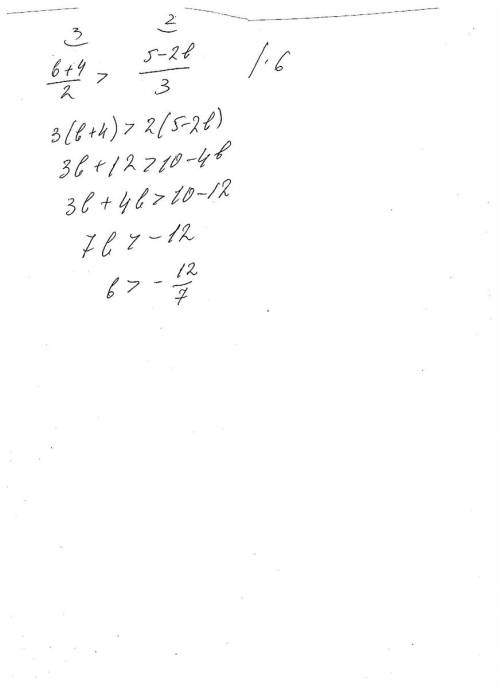 3 2
(b+4)/2 > (5-2b)/3 /·6
3(b+4) > 2(5-2b)
3b+12 > 10-4b
3b+4b > 10-12
7b > -12
b > -12/7